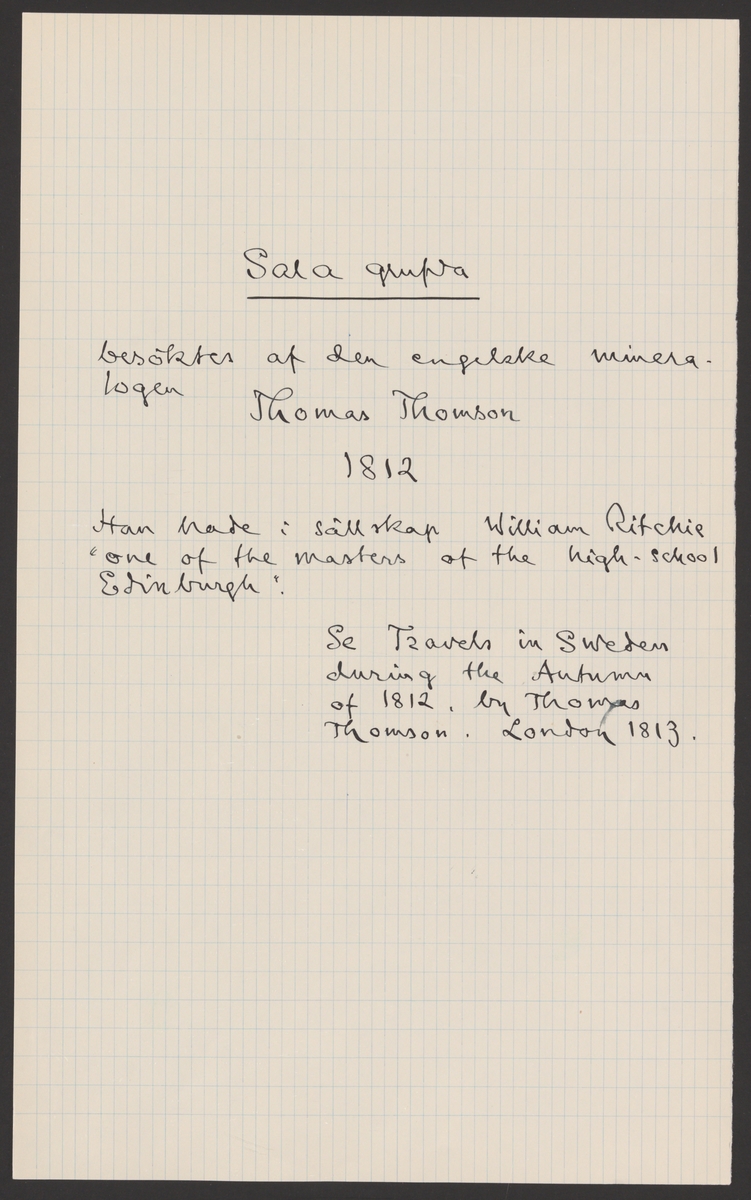 Sala grufva
besöktes af den engelske minera-
logen Thomas Thomson
1812
Han hade i sällskap William Ritchie
"one of the masters of the high-school
Edinburgh".
Se Travels in Sweden
during the Autumn
of 1812. by Thomas
Thomson. London 1813.